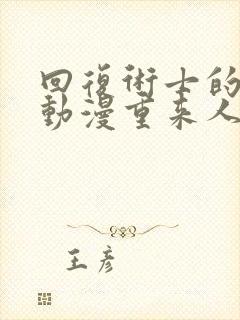 回復術士的
動漫重来人
王彦